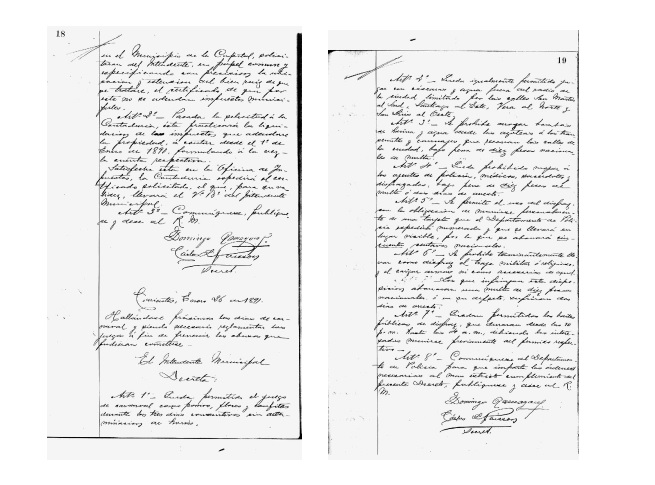 18
en el Municipio de la Capital, solici-
taran del Intendente, en papel comun y
especificando con precision la
y estension del bien raiz de que
se tratare, el certificado de que por
este no se adeudan impuestos munici-
pales.
Artº 2º - Pasada la solicitud á la
Contaduria, esta practicará la liqui-
dacion de los impuestos, que adeudare
la propiedad, á contar desde el 1º de
Enero de 1891, formulando á la vez
la cuenta respectiva.
Satisfecha esta en la Oficina de Im-
puestos, la Contaduria espedirá el cer-
tificado solicitado, el que, para su va-
lidez, llevará el Vº Bº del Intendente
Municipal.
Artº 3º - Comuniquese, publique-
se y dese al R. M.
Domingo
Carlos
Secret.
Corrientes, Enero 26 de 1891.
Hallándose próximos los dias de car-
naval y siendo necesario reglamentar
juegos á fin de prevenir los abusos que
pudieran cometerse.
El Intendente Municipal
Decreta:
Artº 1º - Queda permitido el juego
de carnaval con pomos, flores y confites
durante los tres dias consecutivos sin deter-
minacion de horas.
19
Artº 2º - Queda igualmente permitido ju-
gar con y agua fuera del radio de
la ciudad limitado por las calles San Martin
al Sud, Santiago al Este, Vera al Norte y
San Luis al Oeste.
Artº 3º - Se prohibe arrojar bombas
de goma, y agua desde las azoteas á los tran-
y carruages que recorran las calles de
la ciudad, bajo pena de diez pesos naciona-
les de multa.
Artº 4º - Queda prohibido mojar á
los agentes de policia, médicos, sacerdotes y
disfrazados, bajo pena de diez pesos de
multa ó dos dias de arresto.
Artº 5º - Se permite el uso del disfraz,
con la obligacion de munirse
te de una tarjeta que el Departamento de Poli-
cia espedirá numerada y que se llevará en
lugar visible, por la que se abonará cin-
cuenta centavos nacionales.
Artº 6º - Se prohibe terminantemente lle-
var como disfraz el trage militar ó religioso,
y el cargar armas
Los que infringieren esta dispo-
sicion abonaran una multa de diez pesos
nacionales ó en su defecto, sufriran dos
dias de arresto.
Artº 7º - Quedan permitidos los bailes
públicos, de disfraz, que duraran desde las 10
p. m. hasta las a. m., debiendo los inter-
esados munirse previamente del permiso respec-
tivo.
Artº 8º - Comuniquese al Departamen-
to de Policia para que imparta las órdenes
necesarias al mas estricto cumplimiento del
presente Decreto, publiquese y dese al R.
M.
Domingo
Carlos
Secret.